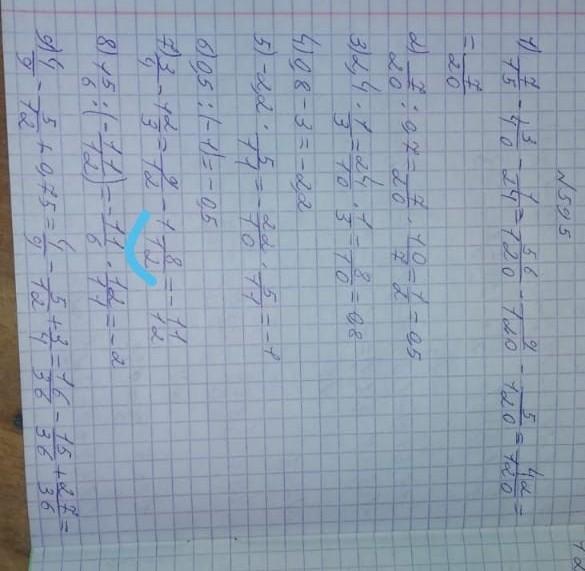 №595
1) 7/15 - 3/40 - 1/24 = 56/120 - 9/120 - 5/120 = 42/120 =
= 7/20
2) 7/20 : 0,7 = 7/20 · 10/7 = 1/2 = 0,5
3) 2,4 · 1/3 = 24/10 · 1/3 = 8/10 = 0,8
4) 0,8 - 3 = -2,2
5) -2,2 · 5/11 = -22/10 · 5/11 = -1
6) 0,5 : (-1) = -0,5
7) 3/4 - 1 2/3 = 9/12 - 1 8/12 = - 11/12
8) 1 5/6 : (- 11/12) = - 11/6 · 12/11 = -2
9) 4/9 - 5/12 + 0,75 = 4/9 - 5/12 + 3/4 = 16/36 - 15/36 + 27/36 =